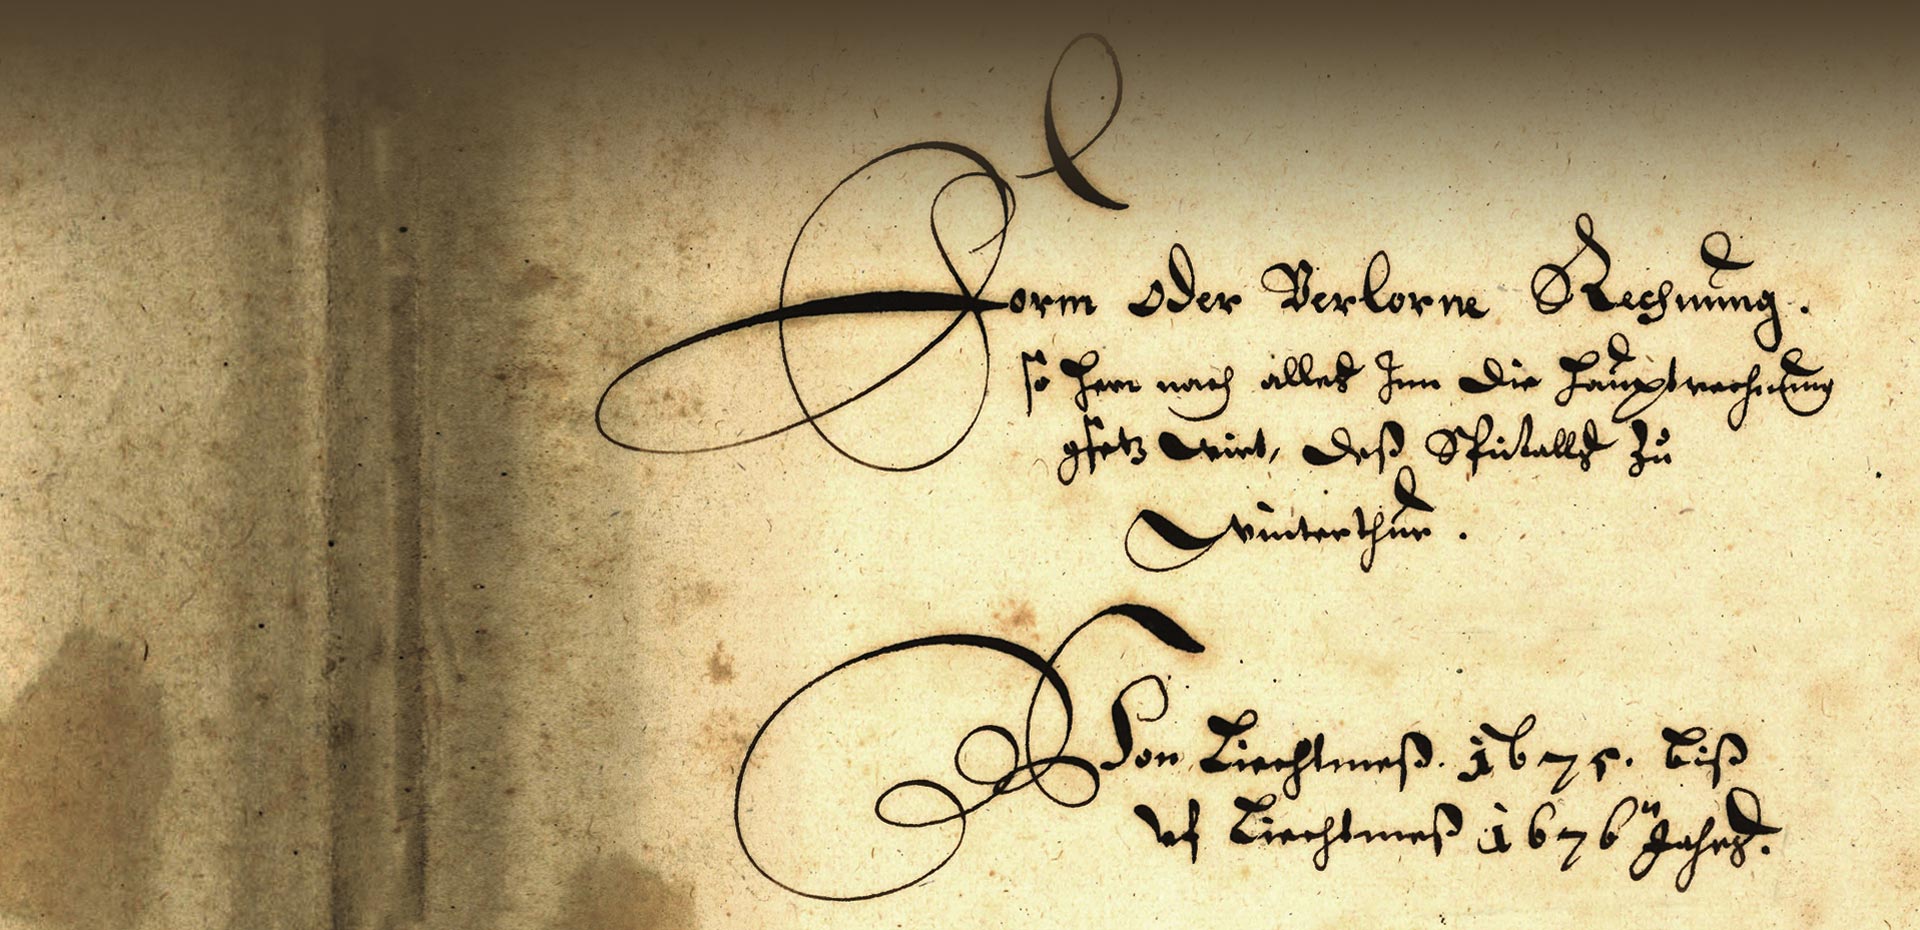 Form oder Verlorne Rechnung.
so hern nach alles Inn die Hauptrechnung
gsetz wirt, deß Spitalls zů
Winterthur.
Von Liechtmeß. 1675. biß
vf Liechtmeß 1676 Jahrs.